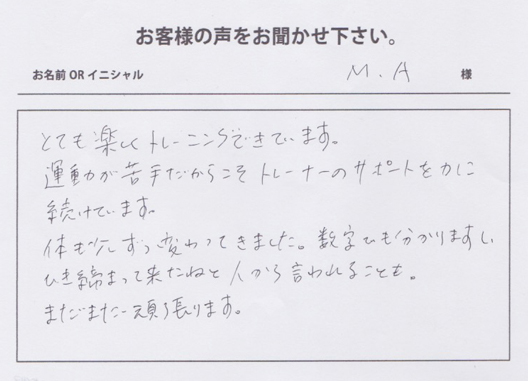 お客様の声をお聞かせ下さい。
お名前 OR イニシャル M.A 様
とても楽しくトレーニングできています。
運動が苦手だからこそトレーナーのサポートを力に
続けています。
体も少しずつ変わってきました。数字でも分かりますし
ひき締まって来たねと人から言われることも。
まだまだ頑張ります。